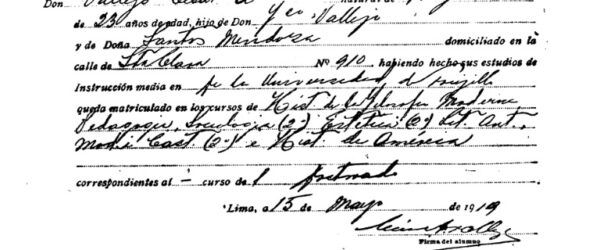 Don Vallejo César A. natural de
de 23 años de edad, hijo de Don Fco Vallejo
y de Doña Santos Mendoza domiciliado en la
calle de Sta Clara Nº 910, habiendo hecho sus estudios de
Instrucción media en la Universidad d Trujillo
queda matriculado en los cursos de Hist. de la Filosofía Moderna
Pedagogía, Sociología (2º) Estética (2º) Lit. Ant.
Cast (2º) e Hist. de América
correspondientes al - curso de
Lima, a 15 de Mayo de 1919
Firma del alumno